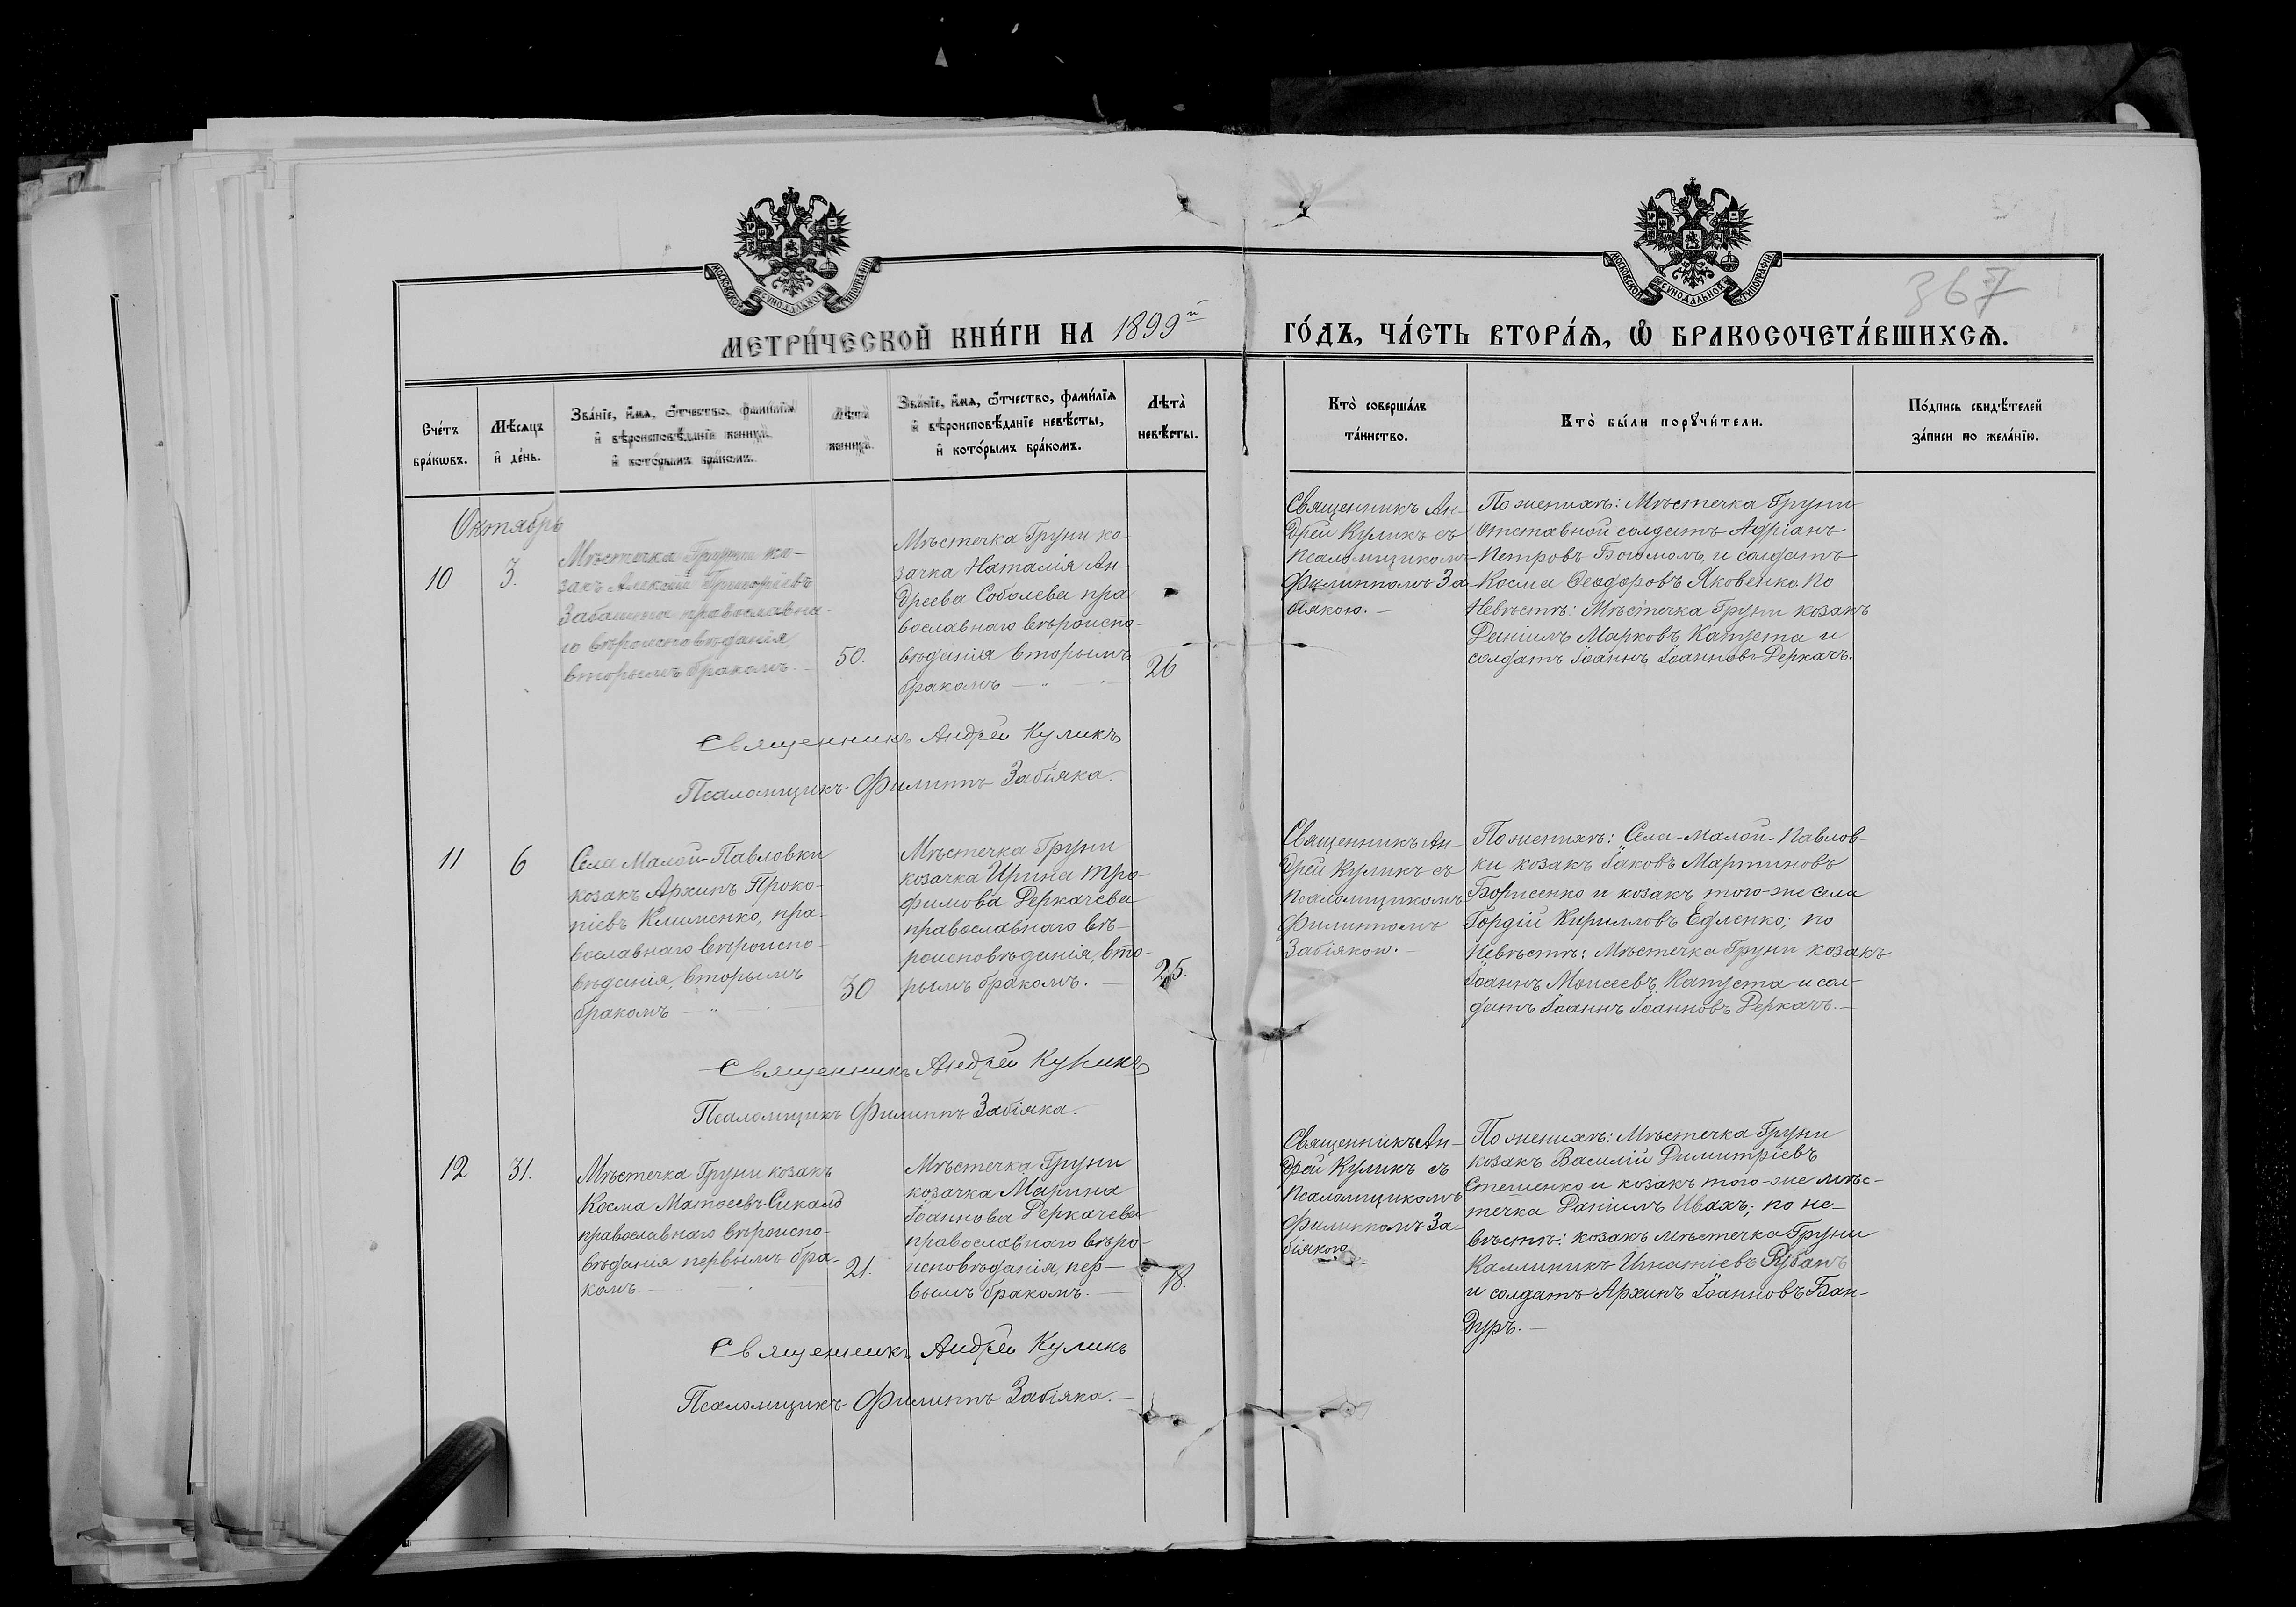 МОСКОВСКОЙ СѴНОДАЛЬНОЙ ТИПОГРАФІИ
МОСКОВСКОЙ СѴНОДАЛЬНОЙ ТИПОГРАФІИ
367
МЕТРИ́ЧЕСКОЙ КНИ́ГИ НА 1899й
ГО́ДЪ, ЧА́СТЬ ВТОРА́Ѧ, Ѽ БРАКОСОЧЕТА́ВШИХСѦ.
Сче́тъ
бра́кѡвъ.
Мѣ́сяцъ
и҆ де́нь.
Зва́нїе, и҆́мѧ, ѻ҆́тчество, фами́лїѧ
и҆ вѣроисповѣ́данїе жениха̀,
и҆ кото́рымъ бра́комъ.
Лѣ́та
жениха̀.
Зва́нїе, и҆́мѧ, ѻ҆́тчество, фами́лїѧ
и҆ вѣроисповѣ́данїе невѣ́сты,
и҆ кото́рымъ бра́комъ.
Лѣта̀
невѣ́сты.
Кто̀ соверша́лъ
та́инство.
Кто̀ бы́ли порꙋчи́тели.
По́дпись свидѣ́телей
за́писи по жела́нїю.
Октябрь
10
3.
Мѣстечка Груни ко-
закъ Алексій Григоріевъ
Забашта православна-
го вѣроисповѣданія,
вторымъ бракомъ.
50.
Мѣстечка Груни ко
зачка Наталія Ан-
дреева Соболева пра
вославнаго вѣроиспо-
вѣданія вторымъ
бракомъ — " —
26
Священникъ Ан-
дрей Куликъ съ
псаломщикомъ
Филиппомъ За-
біякою. —
По женихѣ: Мѣстечка Груни
отставной солдатъ Адріанъ
Петровъ Богомолъ, и солдатъ
Косма Ѳеодоровъ Яковенко по
невѣстѣ: Мѣстечка Груни козакъ
Даніилъ Марковъ Капуста и
солдатъ Іоаннъ Іоанновъ Деркачъ.
Священникъ Андрей Куликъ
Псаломщикъ Филиппъ Забіяка.
11
6
Села Малой-Павловки
козакъ Архипъ Проко-
піевъ Клименко, пра-
вославнаго вѣроиспо-
вѣданія, вторымъ
бракомъ — " —
30
Мѣстечка Груни
козачка Ирина Тро-
фимова Деркачева
православнаго вѣ-
роисповѣданія, вто-
рымъ бракомъ. —
25.
Священникъ Ан-
дрей Куликъ съ
псаломщикомъ
Филиппомъ
Забіякою. —
По женихѣ: Села-Малой-Павлов-
ки козакъ Іаковъ Мартиновъ
Борисенко и козакъ того-же села
Гордій Кирилловъ Едленко; по
невѣстѣ: Мѣстечка Груни козакъ
Іоаннъ Моисеевъ Капуста и сол-
датъ Іоаннъ Іоанновъ Деркачъ. —
Священникъ Андрей Куликъ
Псаломщикъ Филиппъ Забіяка.
12
31.
Мѣстечка Груни козакъ
Косма Матѳеевъ
православнаго вѣроиспо-
вѣданія первымъ бра-
комъ —
21.
Мѣстечка Груни
козачка Марина
Іоаннова Деркачева
православнаго вѣро-
исповѣданія, пер-
вымъ бракомъ. —
18.
Священникъ Ан-
дрей Куликъ съ
псаломщикомъ
Филиппомъ За
біякою.
По женихѣ: Мѣстечка Груни
козакъ Василій Димитріевъ
Стешенко и козакъ того-же мѣс-
течка Даніилъ Ивахъ; по не-
вѣстѣ: козакъ мѣстечка Груни
Каллиникъ Игнатіевъ Рубанъ
и солдатъ Архипъ Іоанновъ Бан-
дуръ. —
Священникъ Андрей Куликъ
Псаломщикъ Филиппъ Забіяка. —